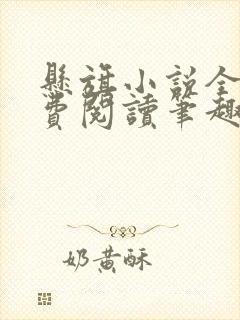 懸旗小說全
費閱讀筆趣
奶黃酥